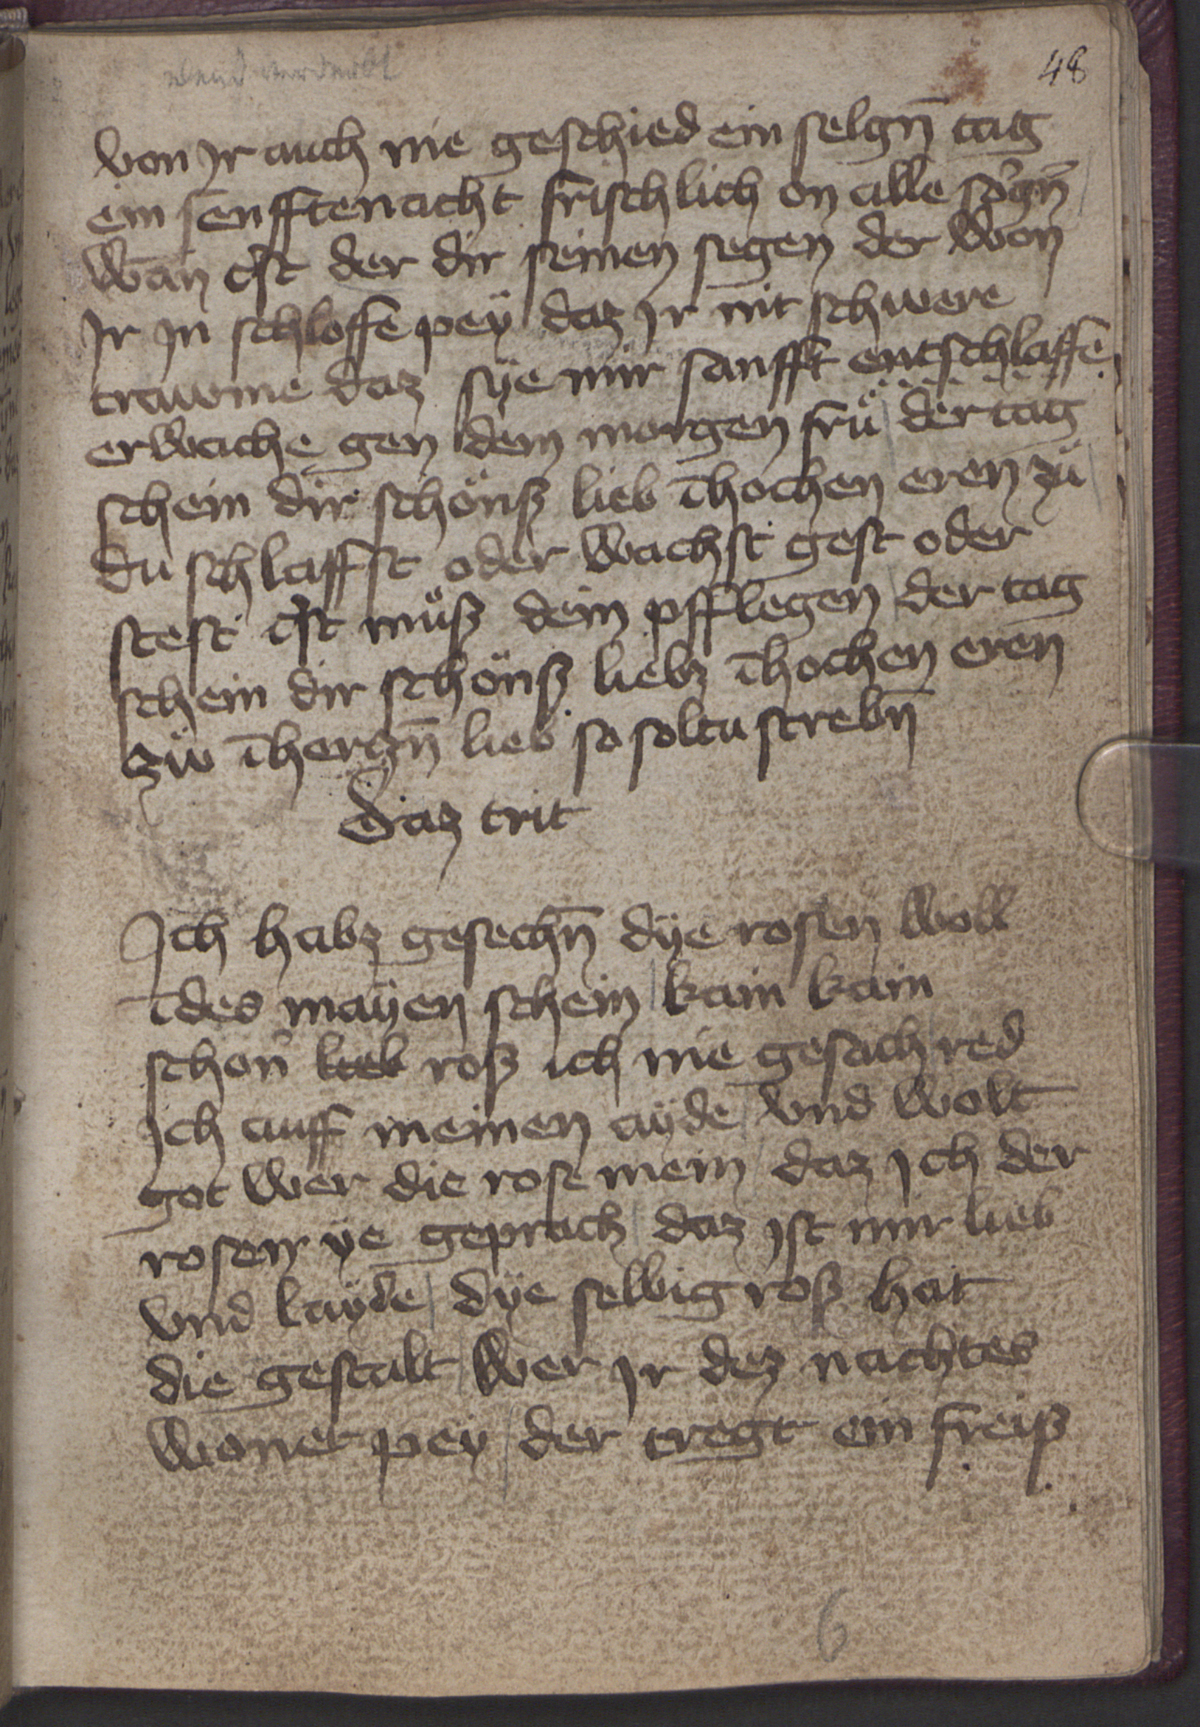 48
von Jr auch nie geschied ein selgn̄ tag
ein senfften nacht frischlich on alle sorgn̄
wan crist der dir seinen segen der won
Jr Jn schloffe peÿ daz Jr nit schwere
trawme daz sÿe mir sanfft entschlaffe
erwache gen dem morgen frü der tag
schein dir schönß lieb ī hochen eren zü
du schlaffst oder wachst gest oder
stest crist müß dein pfflegen der tag
schein dir schönß liebz ī hochen eren
zw ī herczn̄ lieb so soltu strebn̄
Daz trit
Ich habz gesechn̄ dÿe rosen woll
ī des maÿen schein kain kain
schon lieb roß ich nie gesach red
Jch auff meinen aÿde vnd wolt
got wer die rose mein daz Jch der
rosen ÿe geprach daz Jst mir lieb
vnd laÿde dÿe selbig roß hat
die gestalt wer Jr dez nachtes
wonet peÿ der tregt ein freiß
6